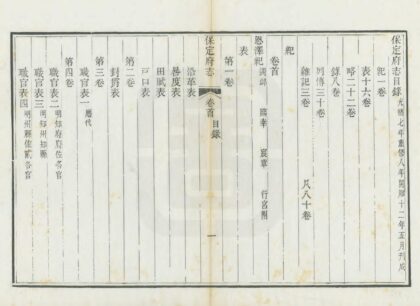 保定府志目錄光緒七年重修八年開雕十二年五月刊成
紀一卷
表十六卷
略二十二卷
錄八卷
列傳三十卷
雜記三卷 凡八十卷
卷首
紀
恩澤紀 宸章 行宮圖
表
第一卷
保定府志 卷首 目錄 一
沿革表
晷度表
田賦表
戶口表
第二卷
封爵表
第三卷
職官表一歷代
第四卷
職官表二明知府府佐各官
職官表三明知州知縣
職官表四明州縣佐貳各官